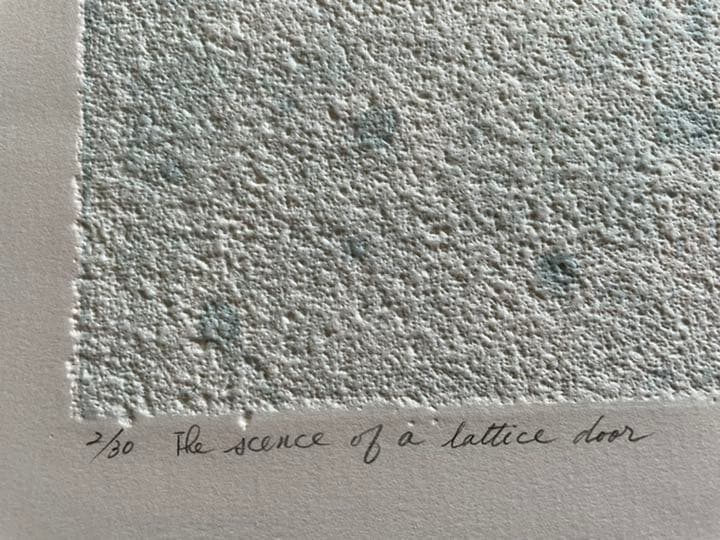 2/30 The scence of a lattice door